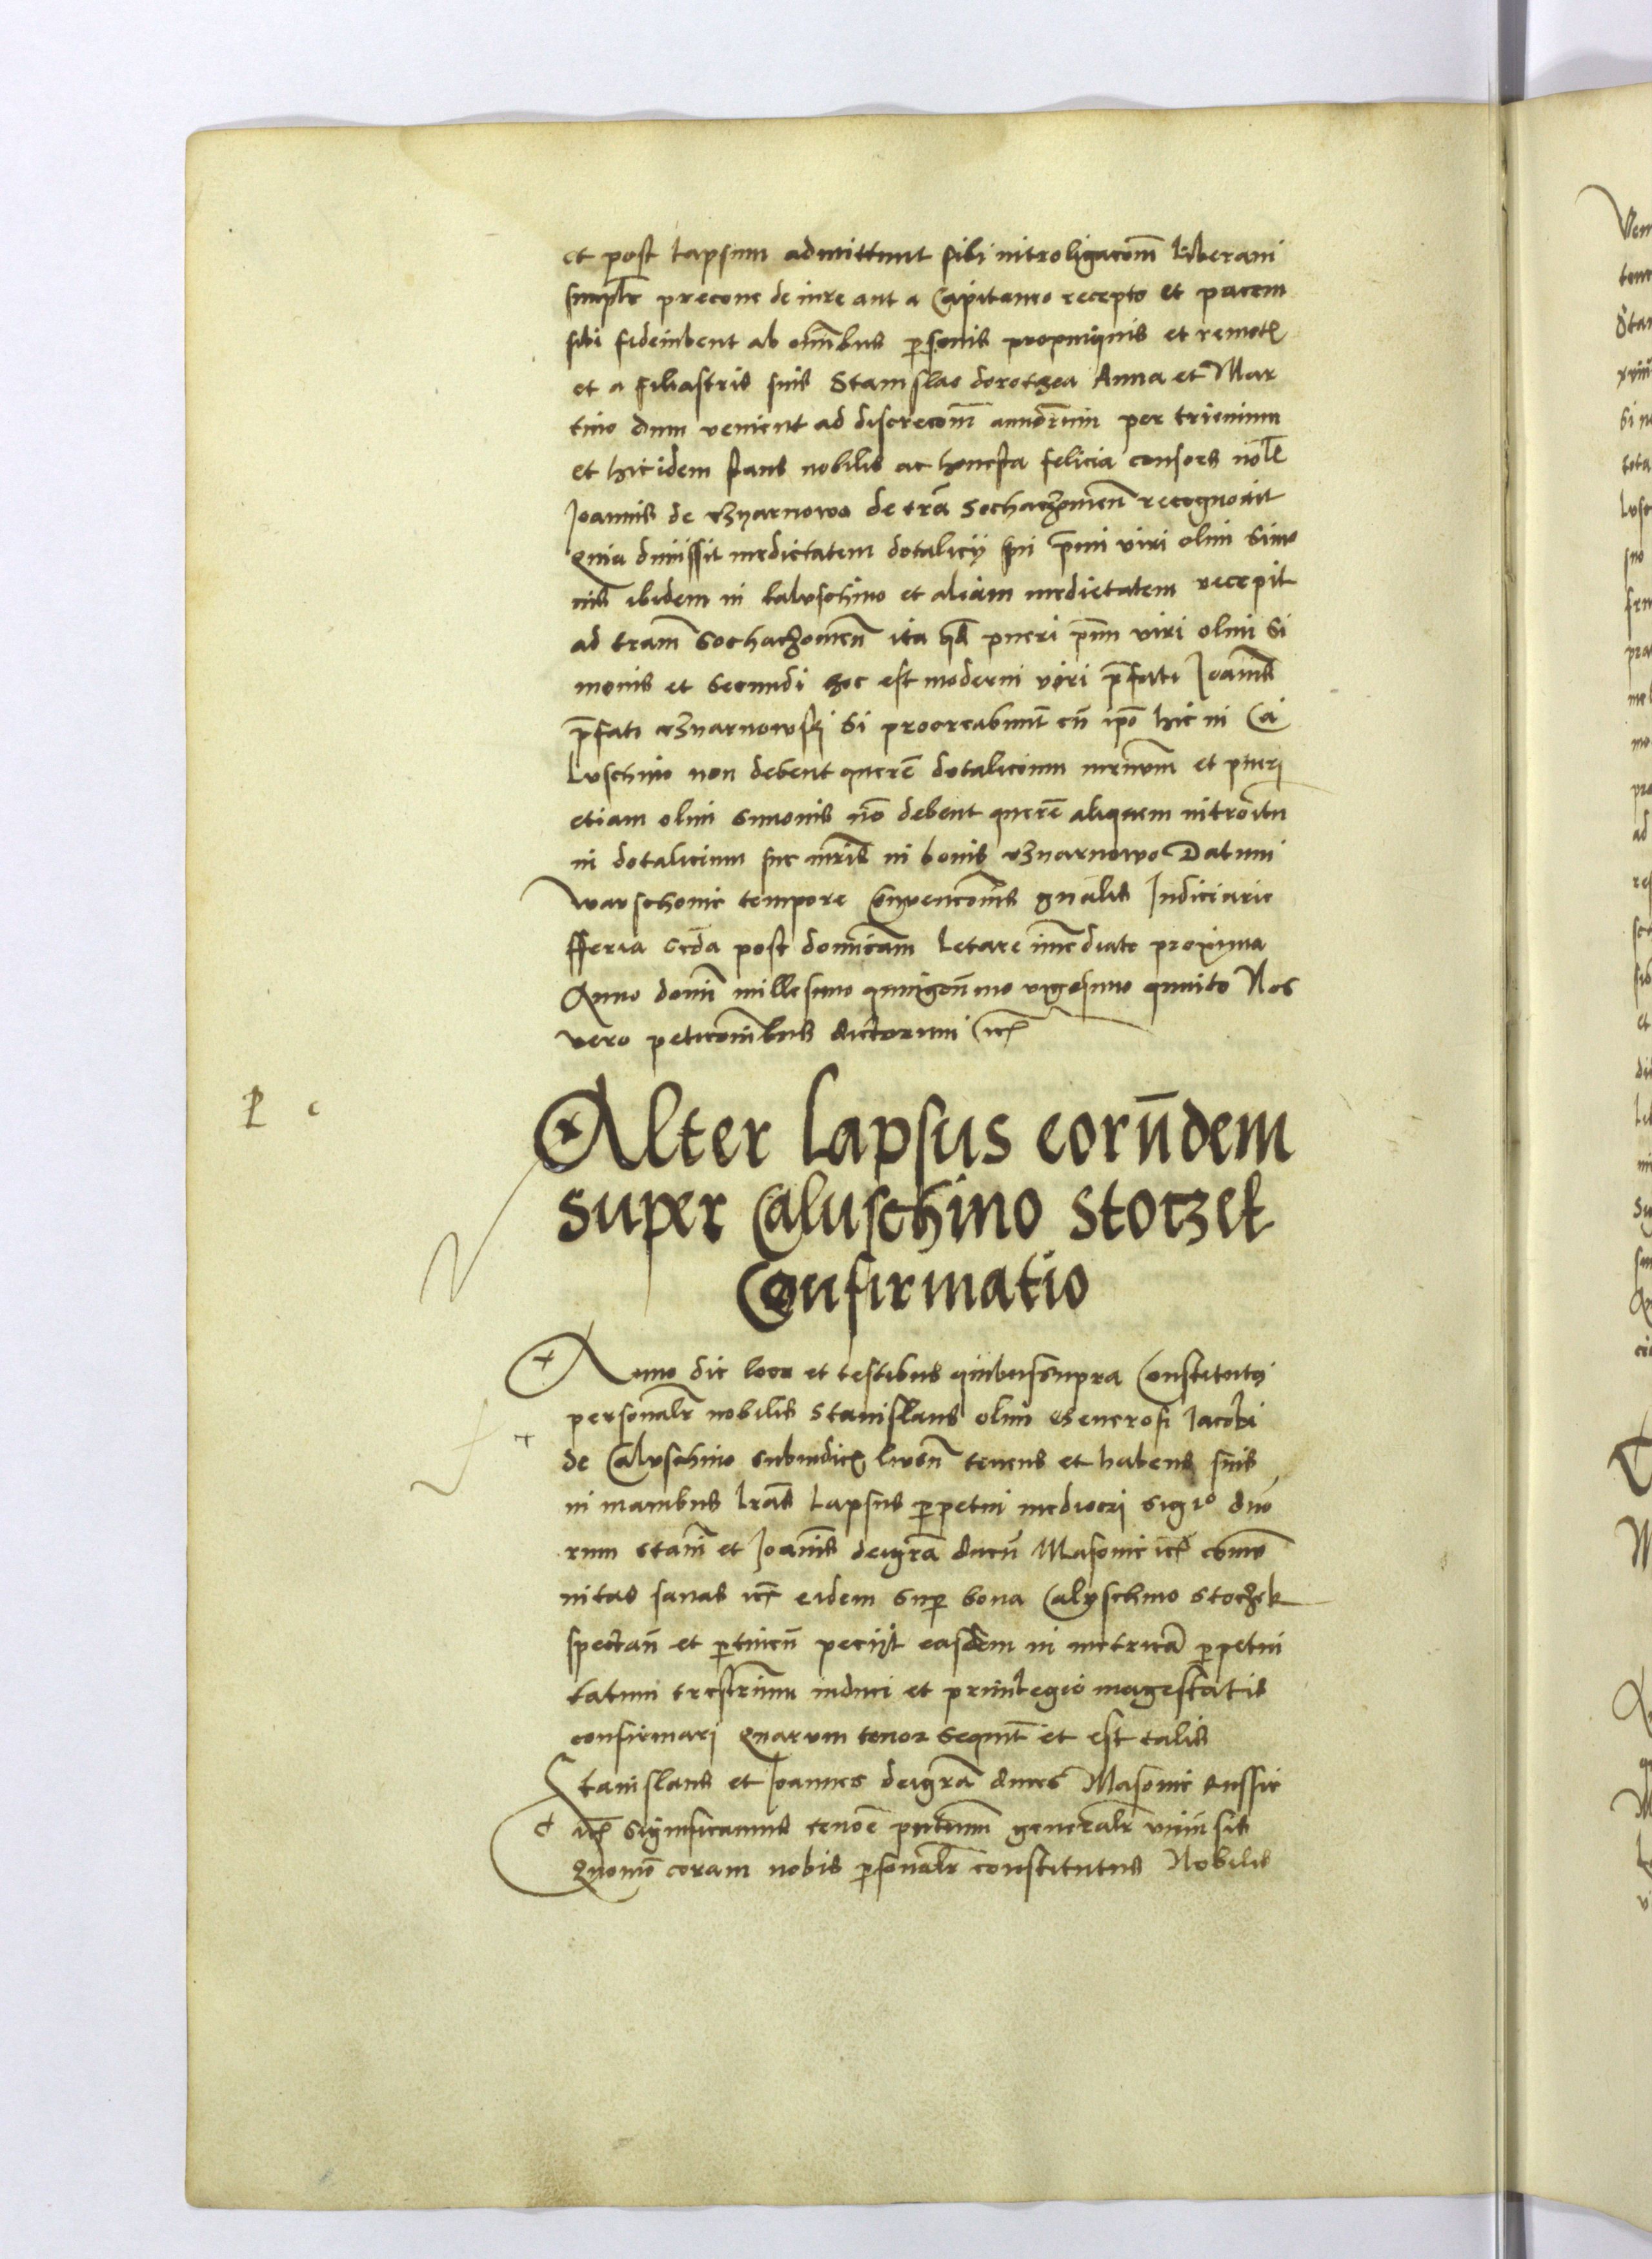 et post lapsum admittunt sibi introligacōm liberam
simplr precone de iure aut a Capitaneo recepto et pacem
sibi fideiubent ab omībus psonis propinquis et remotis
et a filiastris suis Stanislao dorothea Anna et Mar
tino dum venient ad discrecōm annorum per trienium
et hic idem stans nobilis ac honesta felicia consors nobl
Joannis de Gzyarnowo de trā Sochaczomien recognovit
Quia dimissit medietatem dotalicij sui pmi viri olim Simo
nis ibidem in Caluschino et aliam medietatem recepit
ad tram Sochaczomien ita qd pueri pmi viri olim Si
monis et Secundi hoc est moderni viri pfati Joānis
pfati Gzarnowski Si procreabunt cū ipō hic in Ca
luschino non debent querē dotalicium mrnum et pueri
etiam olim Simonis nō debent querē aliquem introitū
in dotalicium sue mris in bonis Gzarnowo Datum
Warschovie tempore Convencōnis gnālis Judiciarie
fferia scda post domicam letare imediate proxima
Anno domi millesimo quingen mo vigesimo quinto Nos
vero peticonibus dictorum etc
P c
Alter lapsus eorūdem
super Caluschino Stoczek
Confirmatio
Anno die loco et testibus quibus supra Constitutus
personalr nobilis Stanislaus olim Generosi Jacobi
de Caluschino subiudicis liven tenens et habens suis
in manibus lras lapsus ppetui mediocri sigio duo
rum stani et Joānis deigrā ducū Masovie etc comu
nitas sanas etc eidem sup bona Caluschino Stoczek
spectan et ptinen peciit easdem in metricā ppetui
tatum trestrium induci et privilegio magestatis
confirmari Quarum tenor sequit et est talis
Stanislaus et Joannes deigrā duces Masovie Russie
etc Significamus tenorē pntium generalr univsis
Quomō coram nobis psonalr constitutus Nobilis